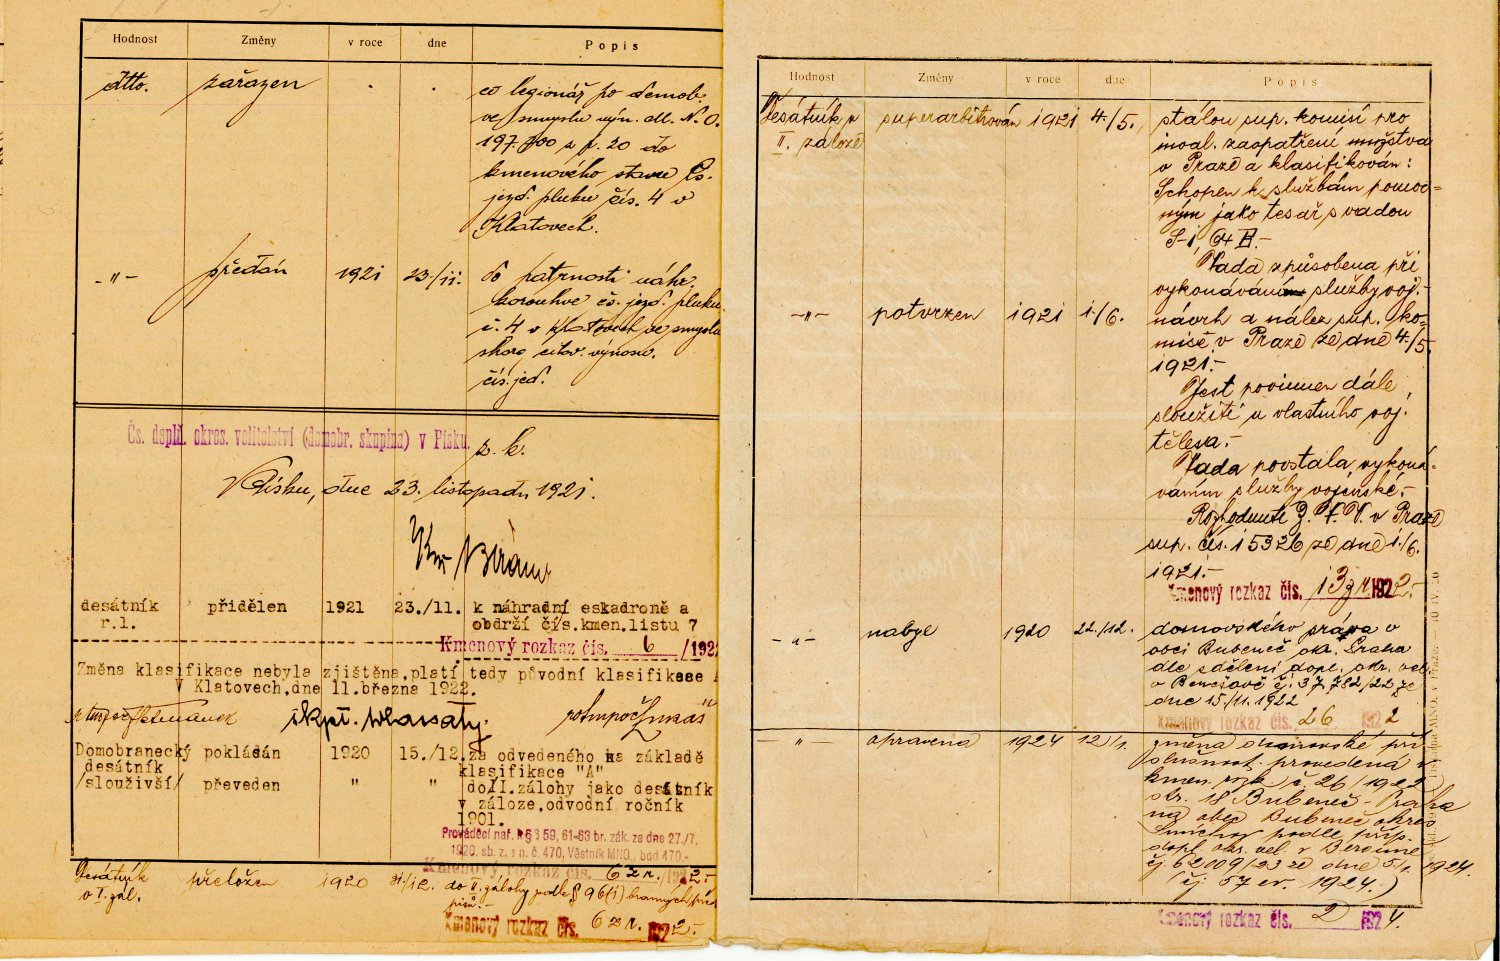 Hodnost Změny v roce dne Popis
dtto. zařazen . . co legionář po demob.
ve smyslu výn. čl. N. O.
197.700 z p. 20 do
kmenového stavu čs.
jezd. pluku čís. 4 v
Klatovech.
-"- předán 1921 23./11. do patrnosti náhr.
korouhve čs. jezd. pluku
č. 4 v Klatovech ve smyslu
shora citov. výnosu.
čís. jed.
Čs. doplň. okres. velitelství (domobr. skupina) v Písku.
z. k.
V Písku, dne 23. listopadu 1921.
desátník přidělen 1921 23./11. k náhradní eskadroně a
r.l. obdrží čís.kmen.listu 7
Kmenový rozkaz čís. 6 /1922
Změna klasifikace nebyla zjištěna,platí tedy původní klasifikace
V Klatovech,dne 11.března 1922.
škpt. Vlasatý.
Domobranecký pokládán 1920 15./12. za odvedeného na základě
desátník klasifikace "A"
/slouživší/ převeden " " do I. zálohy jako desátník
v záloze,odvodní ročník
1901.
Prováděcí nař. k § 59, 61-63 br. zák. ze dne 27./7.
1920. sb. z. a n. č. 470, Věstník MNO., bod 470.-
Kmenový rozkaz čís. 62 r. /1922.-
Desátník přeložen 1920 31./12. do II. zálohy podle § 96(1) branných před-
v I. zál. pisů.-
Kmenový rozkaz čís. 62 r. 1922.-
Hodnost Změny v roce dne Popis
Desátník v superarbitrován 1921 4./5. stálou sup. komisí pro
II. záloze inval. zaopatření mužstva
v Praze a klasifikován:
Schopen k službám pomoc=
ným jako tesař s vadou
S-1, 64 B.-
Vada způsobena při
vykonávání služby voj.-
-"- potvrzen 1921 1./6. návrh a nález sup. ko=
mise v Praze ze dne 4./5.
1921.-
Jest povinnen dále
sloužiti u vlastního voj.
tělesa.-
Vada povstala vykoná-
váním služby vojenské.-
Rozhodnutí Z. V. V. v Praze
sup. čís. 15326 ze dne 1./6.
1921.-
Kmenový rozkaz čís. 132 r. 1922.-
-"- nabyl 1920 22./12. domovského práva v
obci Bubeneč okr. Praha
dle sdělení dopl. okr. vel.
v Benešově čj. 37.782/22 ze
dne 15./11. 1922
Kmenový rozkaz čís. 26 1922
-"- opravena 1924 12./1. změna domovské pří
slušnosti provedená v
kmen. rozk. č. 26/1922
str. 18 Bubeneč - Praha
na obec Bubeneč okres
Smíchov podle příp.
dopl. okr. vel. v Berouně
čj. 62009/23 ze dne 5/1. 1924.
(čj. 67 ev. 1924.)
Kmenový rozkaz čís. 2 1924.